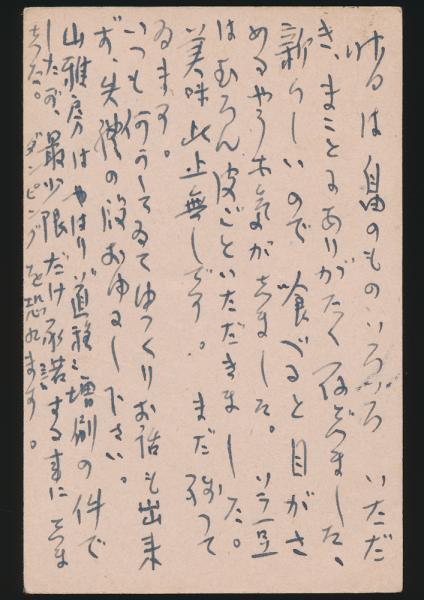 けふは自由のものいろいろいただ
き、まことにありがたく存じました、
新らしいので食べると目がさ
めるやうな気がしました。そら豆
はむろん皮ごといただきました。
美味此上無しです。まだ残って
ゐます。
いつも何かしてゐてゆっくりお話も出来
ず、失礼の段おゆるし下さい。
山雅房はやはり追加増刷の件で
したが、最少限だけ承諾する事にしま
した。ダンピングを恐れます。